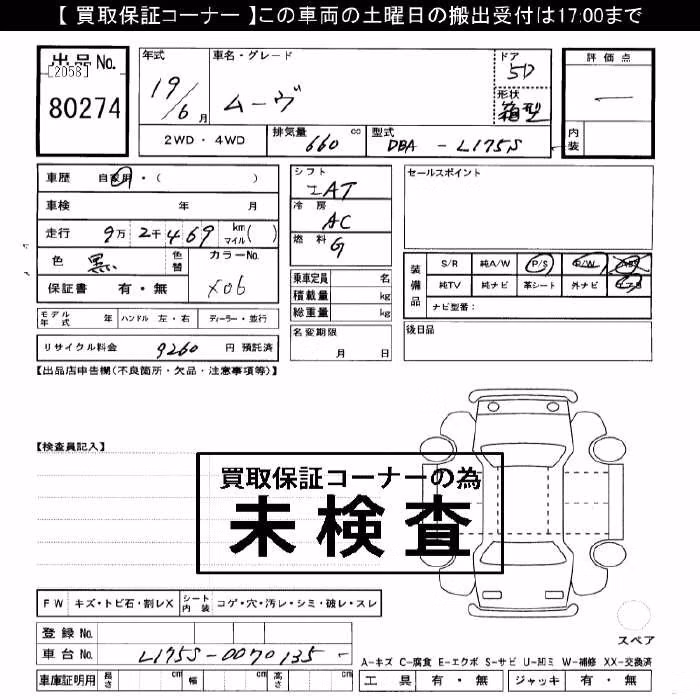 【 買取保証コーナー 】この車両の土曜日の搬出受付は17:00まで
出品No.
[2058]
80274
年式
19/6月
車名・グレード
ムーヴ
ドア
5D
形状
箱型
評価点
―
内装
2WD・4WD
排気量 660 cc
型式 DBA - L175S
車歴 自家用・( )
車検 年 月
走行 9万2千469 km マイル( )
色 黒
色替
カラーNo.
X06
保証書 有・無
モデル年式 年 ハンドル 左・右 ディーラー・並行
リサイクル料金 9260 円 預託済
シフト
IAT
冷房
AC
燃料
G
乗車定員 名
積載量 kg
総重量 kg
名変期限
月 日
セールスポイント
装備品
S/R 純A/W P/S P/W ABS
純TV 純ナビ 革シート 外ナビ エアB
ナビ型番:
後日品
【出品店申告欄(不良箇所・欠品・注意事項等)】
【検査員記入】
買取保証コーナーの為
未検査
FW キズ・トビ石・割レX
シート内装 コゲ・穴・汚レ・シミ・破レ・スレ
登録No.
車台No. L175S-0070135-
車庫証明用 長さ cm 幅 cm 高さ cm
スペア
A-キズ C-腐食 E-エクボ S-サビ U-凹ミ W-補修 XX-交換済
工具 有・無 ジャッキ 有・無